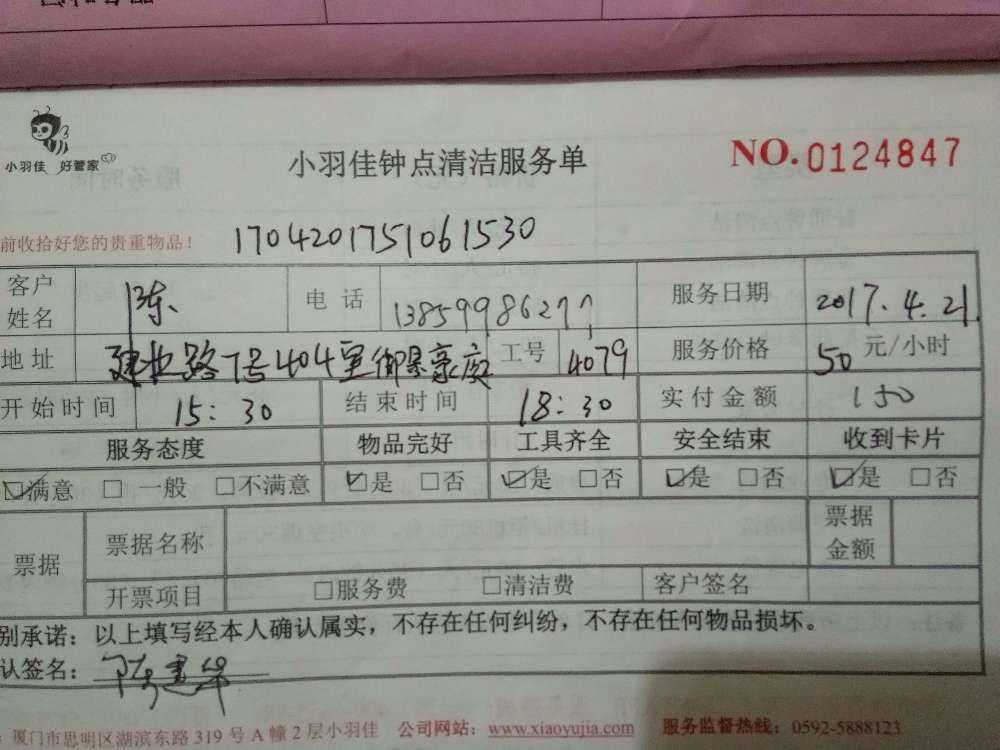 小羽佳 好管家
小羽佳钟点清洁服务单
NO.0124847
前收拾好您的贵重物品！ 1704201751061530
客户姓名 陈 电话 13859986277 服务日期 2017.4.21
地址 建业路7号404室御景豪庭 工号 4079 服务价格 50元/小时
开始时间 15:30 结束时间 18:30 实付金额 150
服务态度 物品完好 工具齐全 安全结束 收到卡片
☑满意 □一般 □不满意 ☑是 □否 ☑是 □否 ☑是 □否 ☑是 □否
票据 票据名称 票据金额
开票项目 □服务费 □清洁费 客户签名
别承诺：以上填写经本人确认属实，不存在任何纠纷，不存在任何物品损坏。
认签名：
：厦门市思明区湖滨东路 319 号 A 幢 2 层小羽佳 公司网站：www.xiaoyujia.com 服务监督热线：0592-5888123